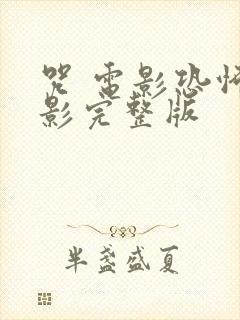 咒 电影恐怖
影完整版
半盏盛夏